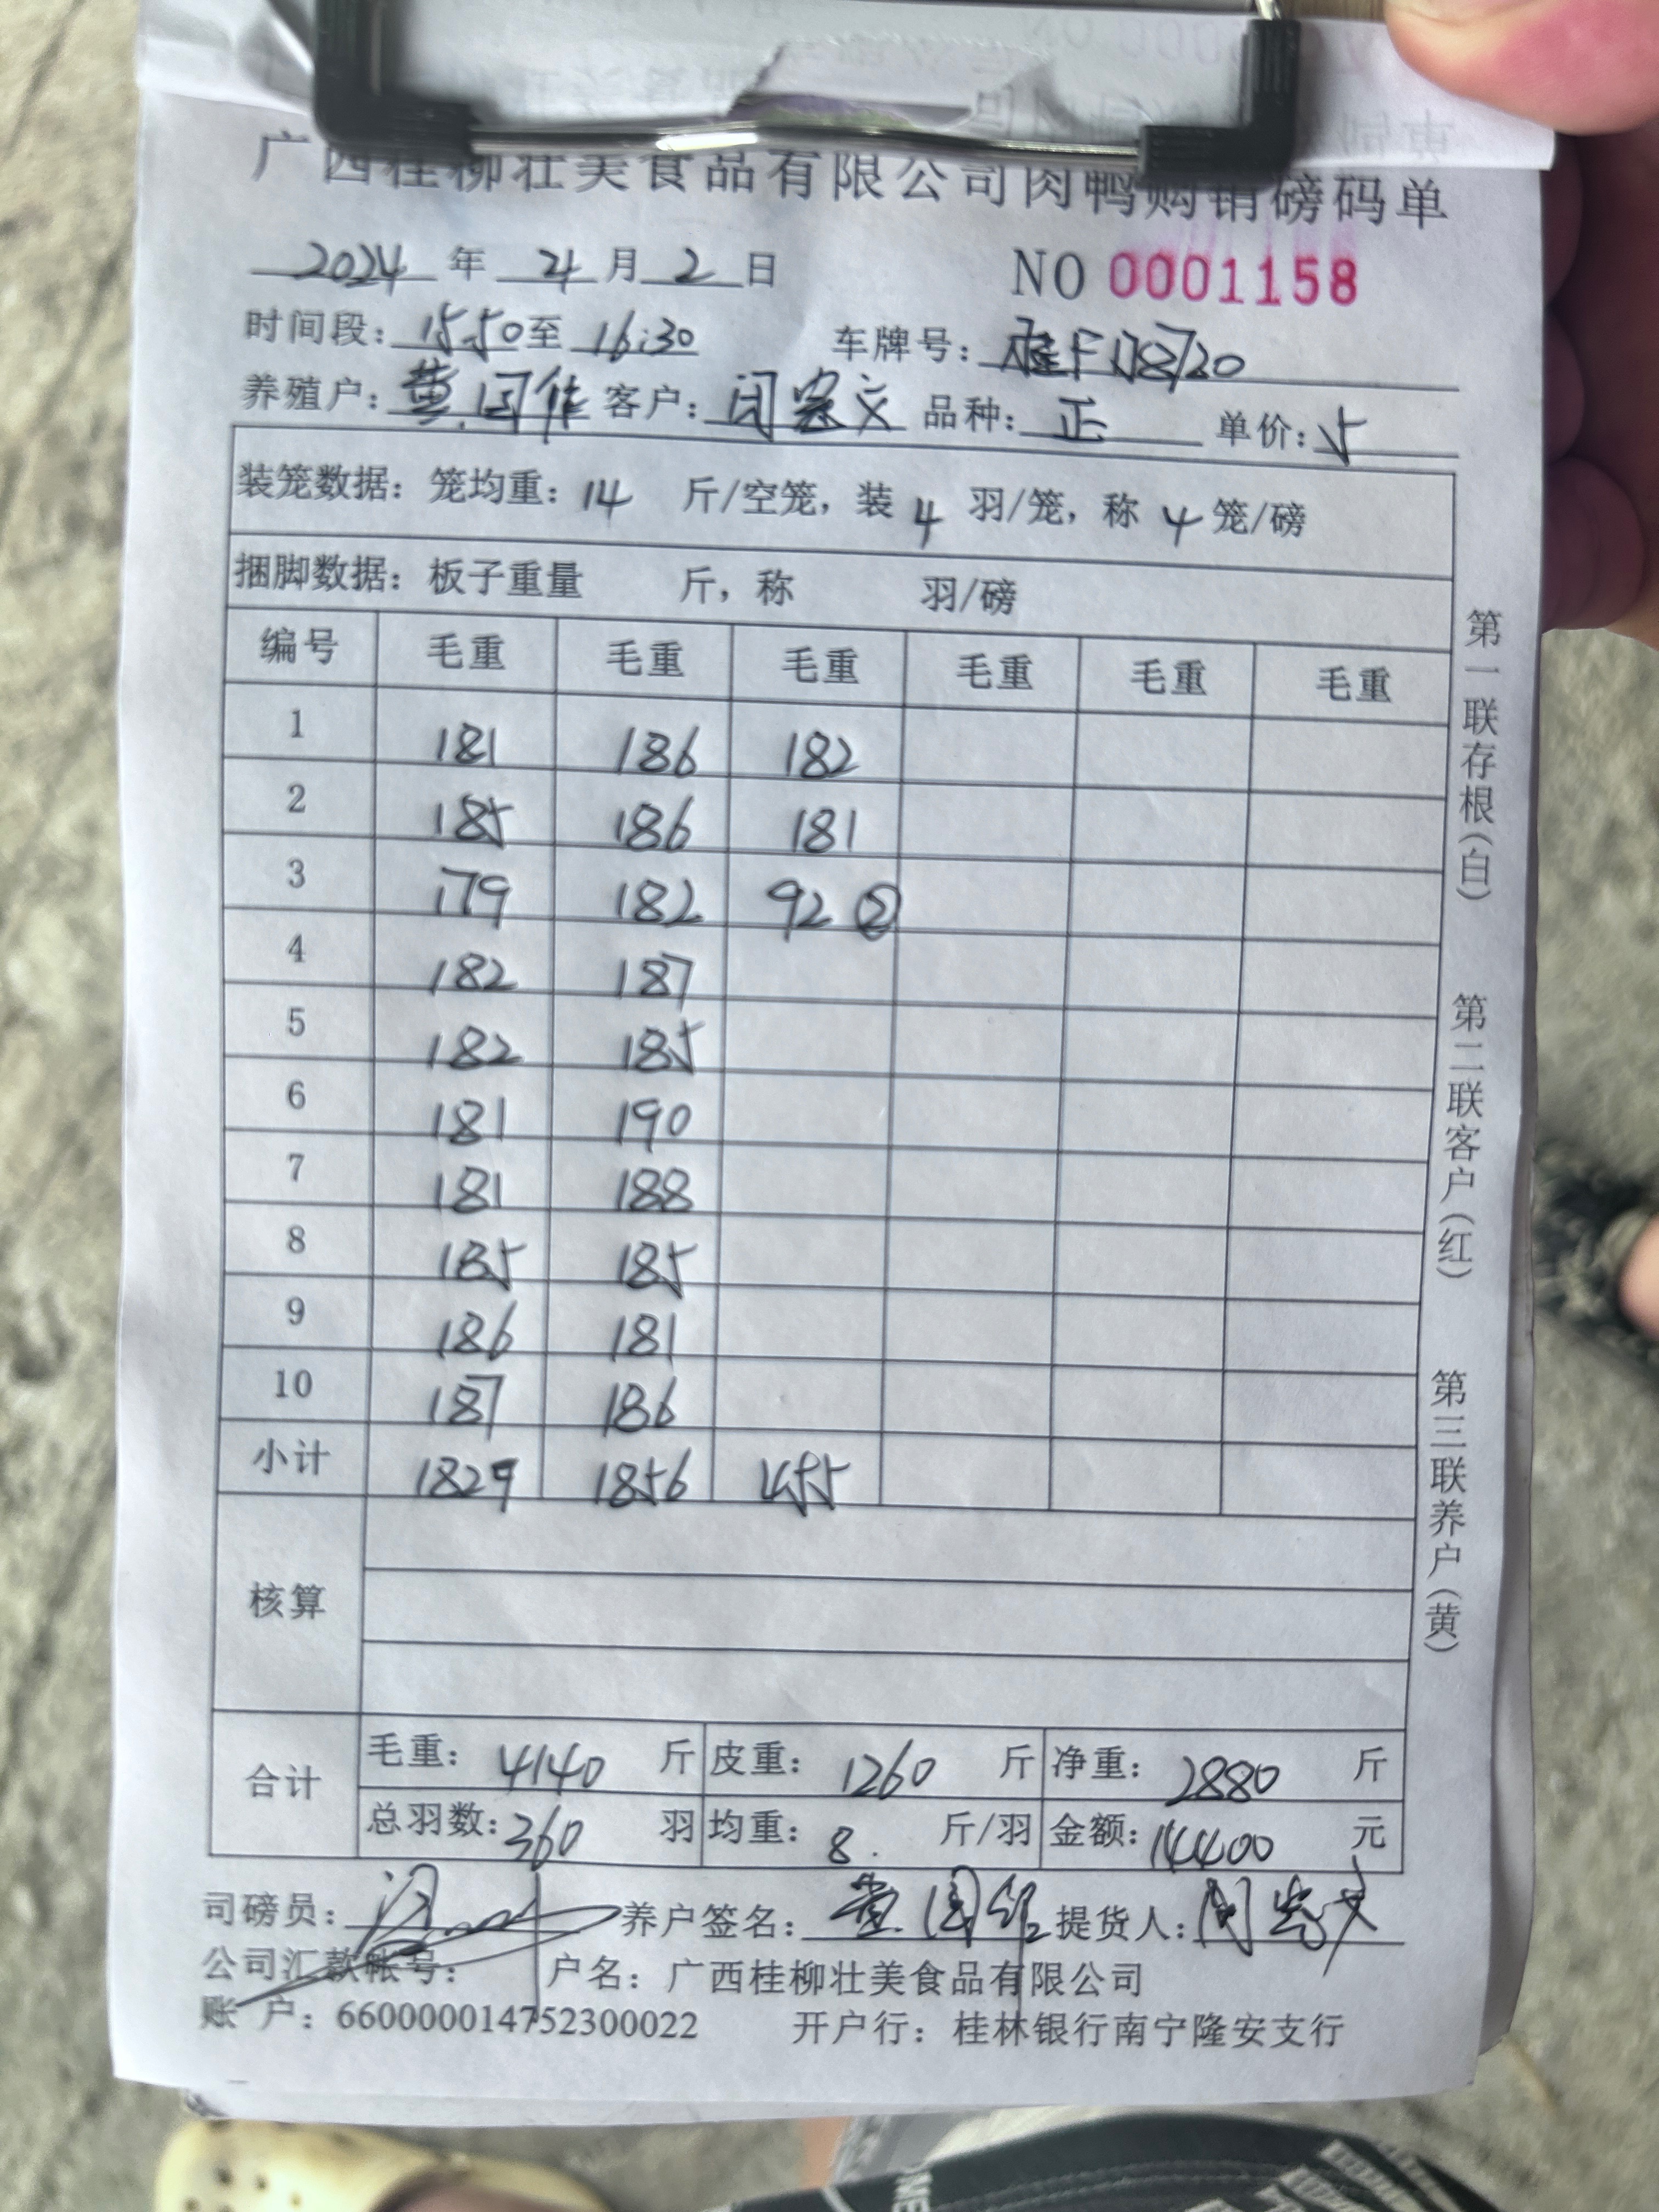 广西桂柳壮美食品有限公司肉鸭购销磅码单
2024 年 4 月 2 日 NO 0001158
时间段: 15.50 至 16:30 车牌号: 桂F178720
养殖户: 黄国 客户: 闭宗文 品种: 正 单价: 5
装笼数据: 笼均重: 14 斤/空笼, 装 4 羽/笼, 称 4 笼/磅
捆脚数据: 板子重量 斤, 称 羽/磅
编号 毛重 毛重 毛重 毛重 毛重 毛重
1 181 186 182
2 185 186 181
3 179 182 92 ②
4 182 187
5 182 185
6 181 190
7 181 188
8 185 185
9 186 181
10 187 186
小计 1829 1856 455
核算
合计 毛重: 4140 斤 皮重: 1260 斤 净重: 2880 斤
总羽数: 360 羽 均重: 8. 斤/羽 金额: 14400 元
司磅员: 养户签名: 黄国 提货人: 闭宗文
公司汇款帐号: 户名: 广西桂柳壮美食品有限公司
账 户: 660000014752300022 开户行: 桂林银行南宁隆安支行
第一联存根(白)
第二联客户(红)
第三联养户(黄)